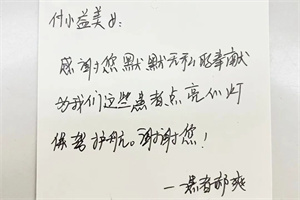 付小益美女:
感谢您默默无私的奉献
为我们这些患者点亮心灯
保驾护航。谢谢您!
—患者郝爽